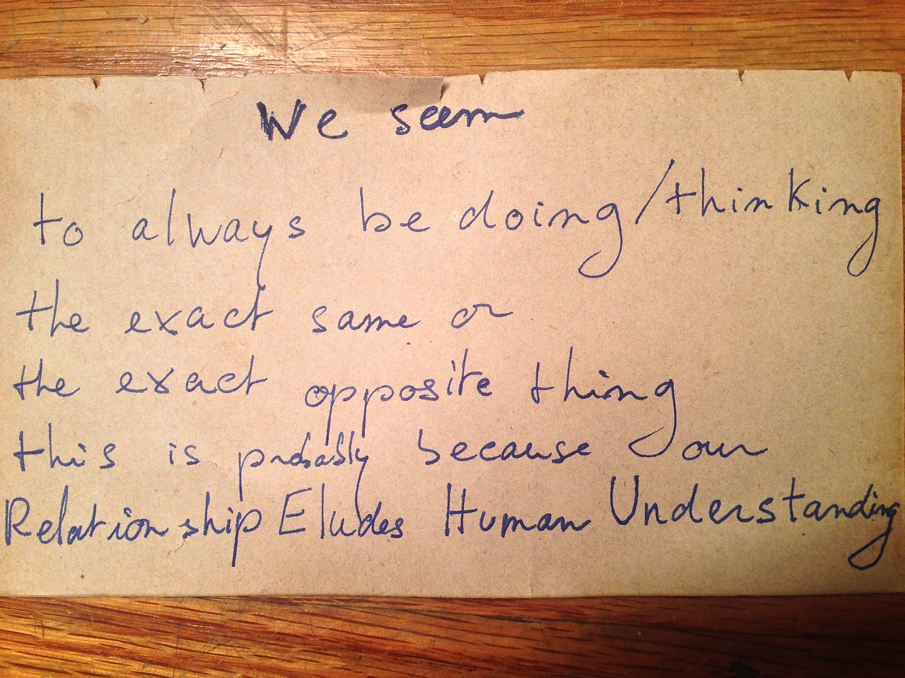 We seem
to always be doing/thinking
the exact same or
the exact opposite thing
this is probably because our
Relationship Eludes Human Understanding